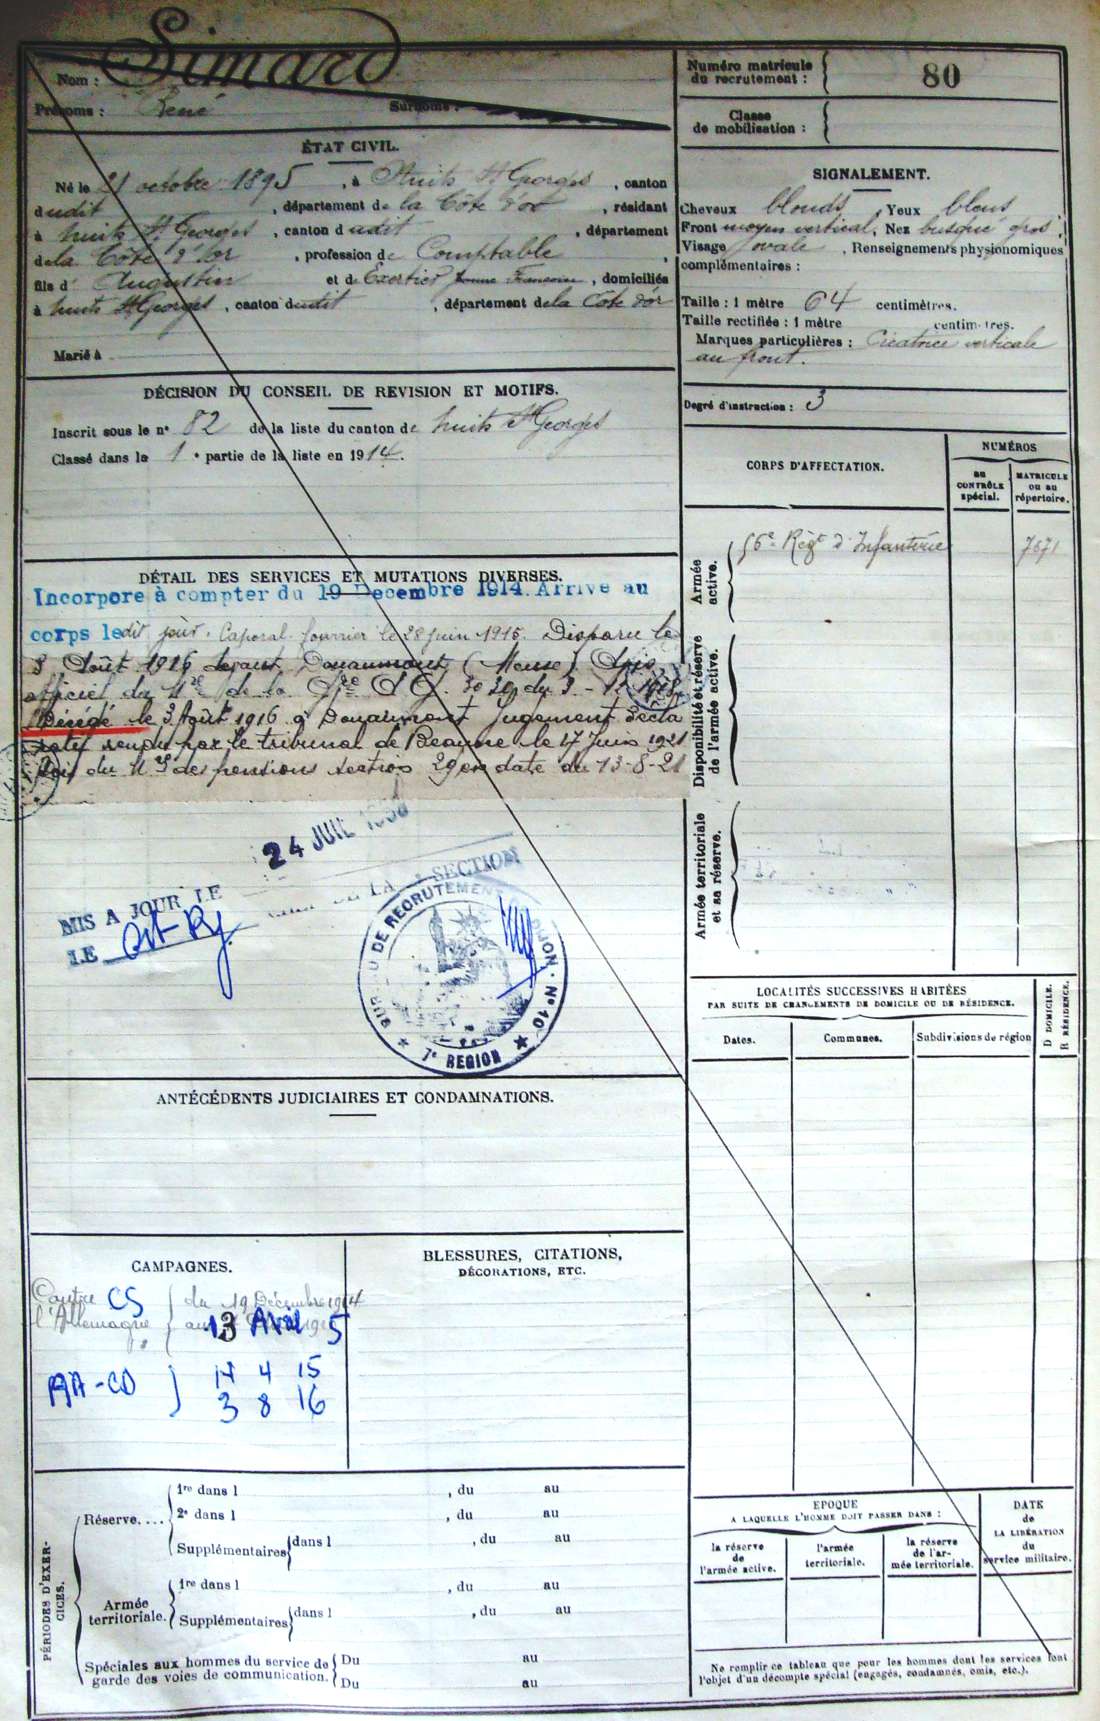 Nom : Simard
Prénoms : René Surnoms :
Numéro matricule du recrutement : 80
Classe de mobilisation :
ÉTAT CIVIL.
Né le 21 octobre 1895, à Nuits St Georges, canton
dudit, département de la Côte d'or, résidant
à Nuits St Georges, canton dudit, département
de la Côte d'or, profession de Comptable,
fils d' Augustin et de Exertier Jeanne Francoise, domiciliés
à Nuits St Georges, canton dudit, département de la Côte d'or
Marié à
SIGNALEMENT.
Cheveux blonds, Yeux bleus
Front moyen vertical, Nez busqué gros,
Visage ovale, Renseignements physionomiques
complémentaires :
Taille : 1 mètre 64 centimètres.
Taille rectifiée : 1 mètre centimètres.
Marques particulières : Cicatrice verticale
au front.
Degré d'instruction : 3
DÉCISION DU CONSEIL DE REVISION ET MOTIFS.
Inscrit sous le n° 82 de la liste du canton de Nuits St Georges
Classé dans la 1e partie de la liste en 1914.
DÉTAIL DES SERVICES ET MUTATIONS DIVERSES.
Incorporé à compter du 19 Decembre 1914. Arrivé au
corps ledit jour. Caporal fourrier le 28 juin 1915. Disparu le
3 Août 1916 devant Douaumont (Meuse) Avis
officiel du
Décédé le 3 Août 1916 à Douaumont Jugement décla
ratif rendu par le tribunal de Beaune le 17 Juin 1921
Avis du des pensions section 29 en date du 13-8-21
MIS A JOUR LE 24 JUIL
LE CHEF DE LA SECTION
BUREAU DE RECRUTEMENT DIJON - N° 10
7e REGION
CORPS D'AFFECTATION.
NUMÉROS
au CONTRÔLE spécial.
MATRICULE ou au répertoire.
Armée active.
56e Régt d'Infanterie 7671
Disponibilité et réserve de l'armée active.
Armée territoriale et sa réserve.
LOCALITÉS SUCCESSIVES HABITÉES
PAR SUITE DE CHANGEMENTS DE DOMICILE OU DE RÉSIDENCE.
Dates. Communes. Subdivisions de région
D DOMICILE.
R RÉSIDENCE.
ANTÉCÉDENTS JUDICIAIRES ET CONDAMNATIONS.
CAMPAGNES.
Contre CS du 19 Décembre 1914
l'Allemagne au 13 Avril 15
AA-CD 14 4 15
3 8 16
BLESSURES, CITATIONS,
DÉCORATIONS, ETC.
PÉRIODES D'EXERCICES.
Réserve....
1re dans l , du au
2e dans l , du au
Supplémentaires dans l , du au
Armée territoriale.
1re dans l , du au
Supplémentaires dans l , du au
Spéciales aux hommes du service de Du au
garde des voies de communication. Du au
EPOQUE
A LAQUELLE L'HOMME DOIT PASSER DANS :
la réserve de l'armée active.
l'armée territoriale.
la réserve de l'armée territoriale.
DATE de LA LIBÉRATION du service militaire.
Ne remplir ce tableau que pour les hommes dont les services font
l'objet d'un décompte spécial (engagés, condamnés, omis, etc.).